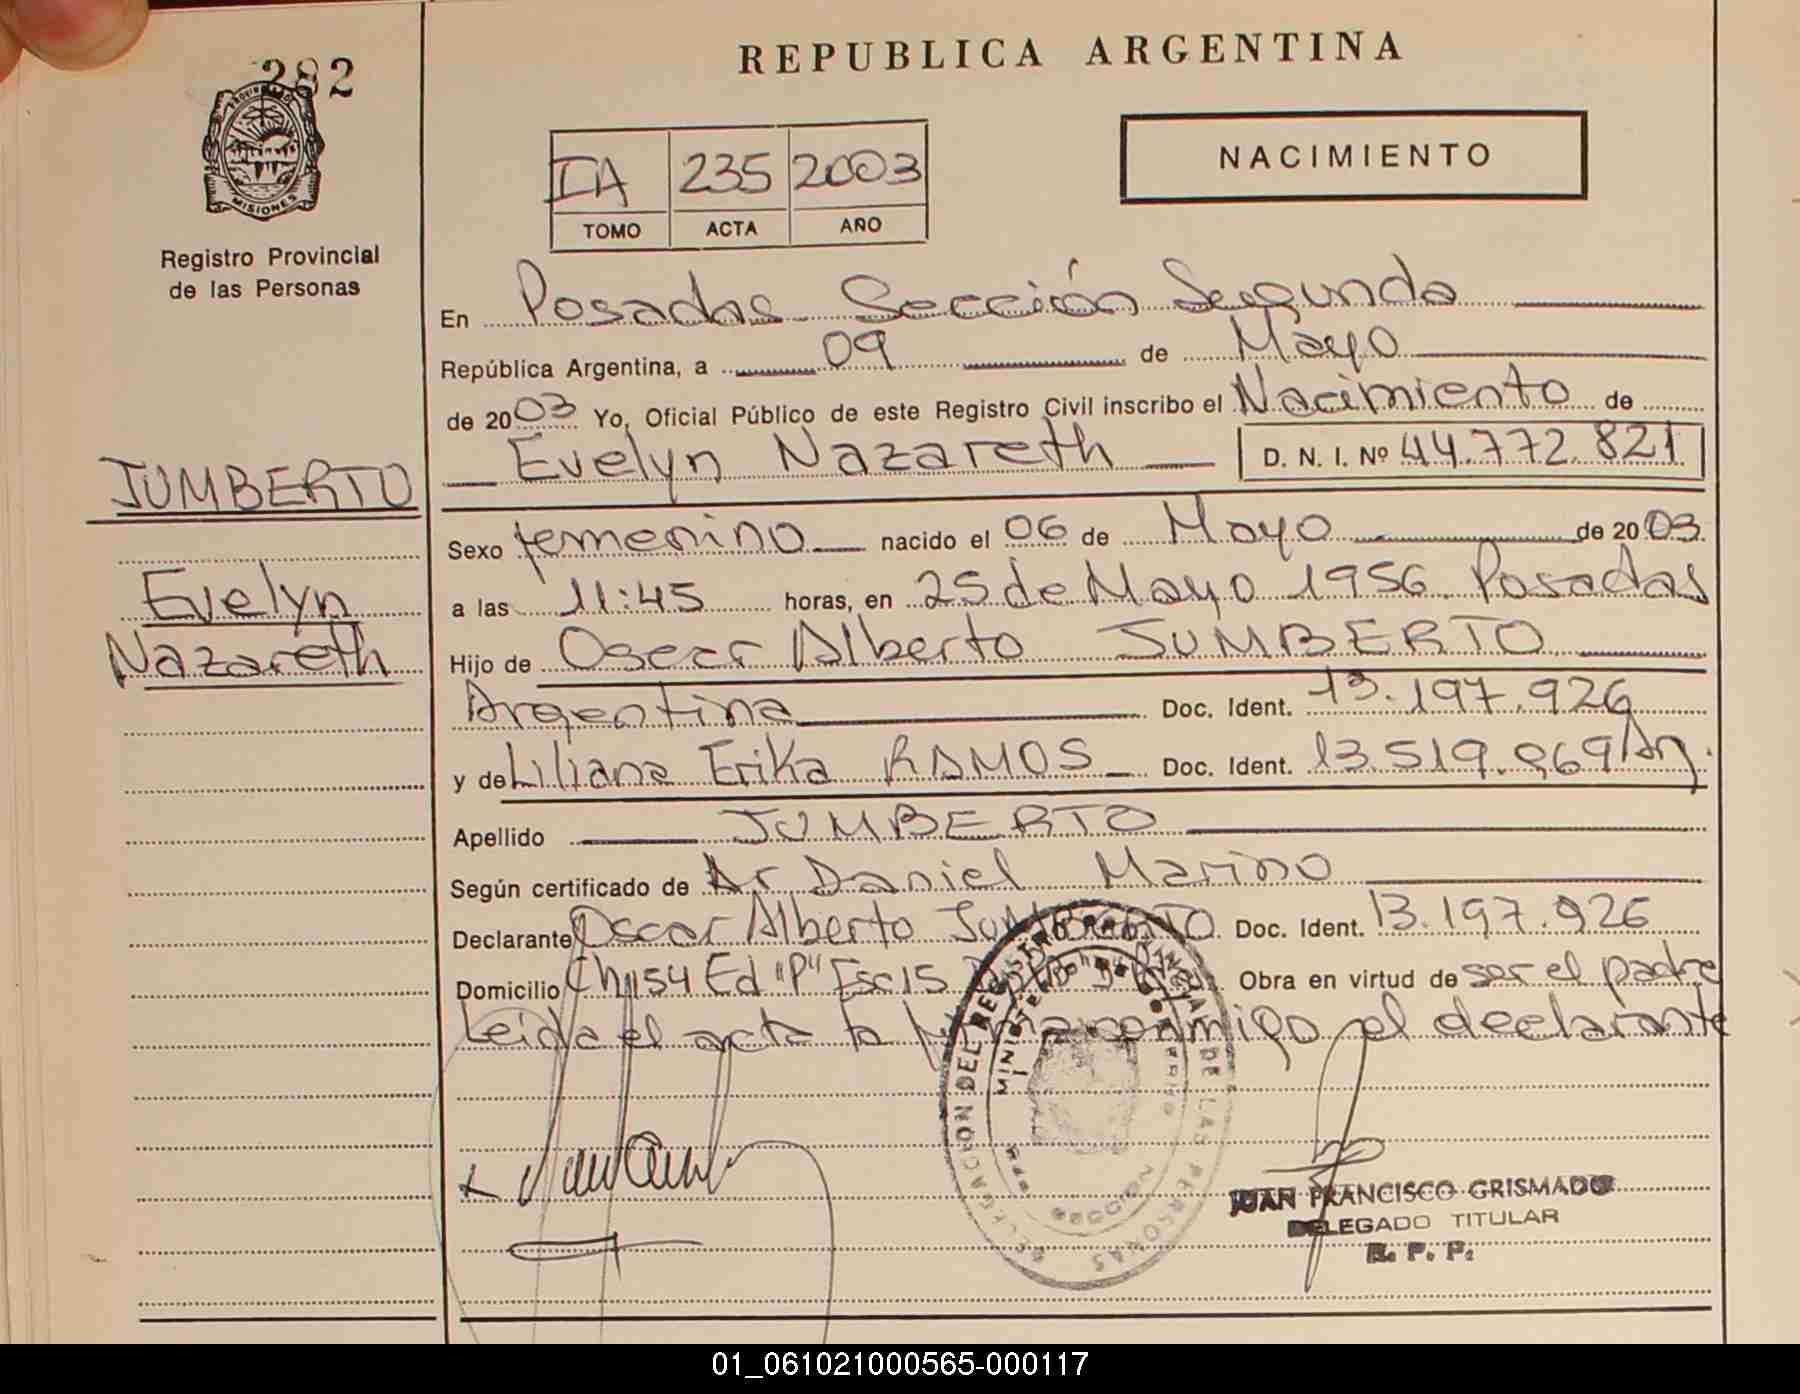 282
PROVINCIA DE
MISIONES
Registro Provincial
de las Personas
JUMBERTO
Evelyn
Nazareth
REPUBLICA ARGENTINA
NACIMIENTO
IA 235 2003
TOMO ACTA AÑO
En Posadas Sección Segunda
República Argentina, a 09 de Mayo
de 2003 Yo, Oficial Público de este Registro Civil inscribo el Nacimiento de
Evelyn Nazareth D. N. I. Nº 44.772.821
Sexo femenino nacido el 06 de Mayo de 2003.
a las 11:45 horas, en 25 de Mayo 1956. Posadas
Hijo de Oscar Alberto JUMBERTO
Argentina Doc. Ident. 13.197.926
y de Liliana Erika RAMOS Doc. Ident. 13.519.969 Arg.
Apellido JUMBERTO
Según certificado de Dr Daniel Marino
Declarante Oscar Alberto JUMBERTO Doc. Ident. 13.197.926
Domicilio Ch 154 Ed "P" Esc 15 Obra en virtud de ser el padre
Leida el acta la firma conmigo el declarante
DELEGACION DEL REGISTRO PROVINCIAL DE LAS PERSONAS
MINISTERIO DE GOBIERNO
JUAN FRANCISCO GRISMADO
DELEGADO TITULAR
R. P. P.
01_061021000565-000117